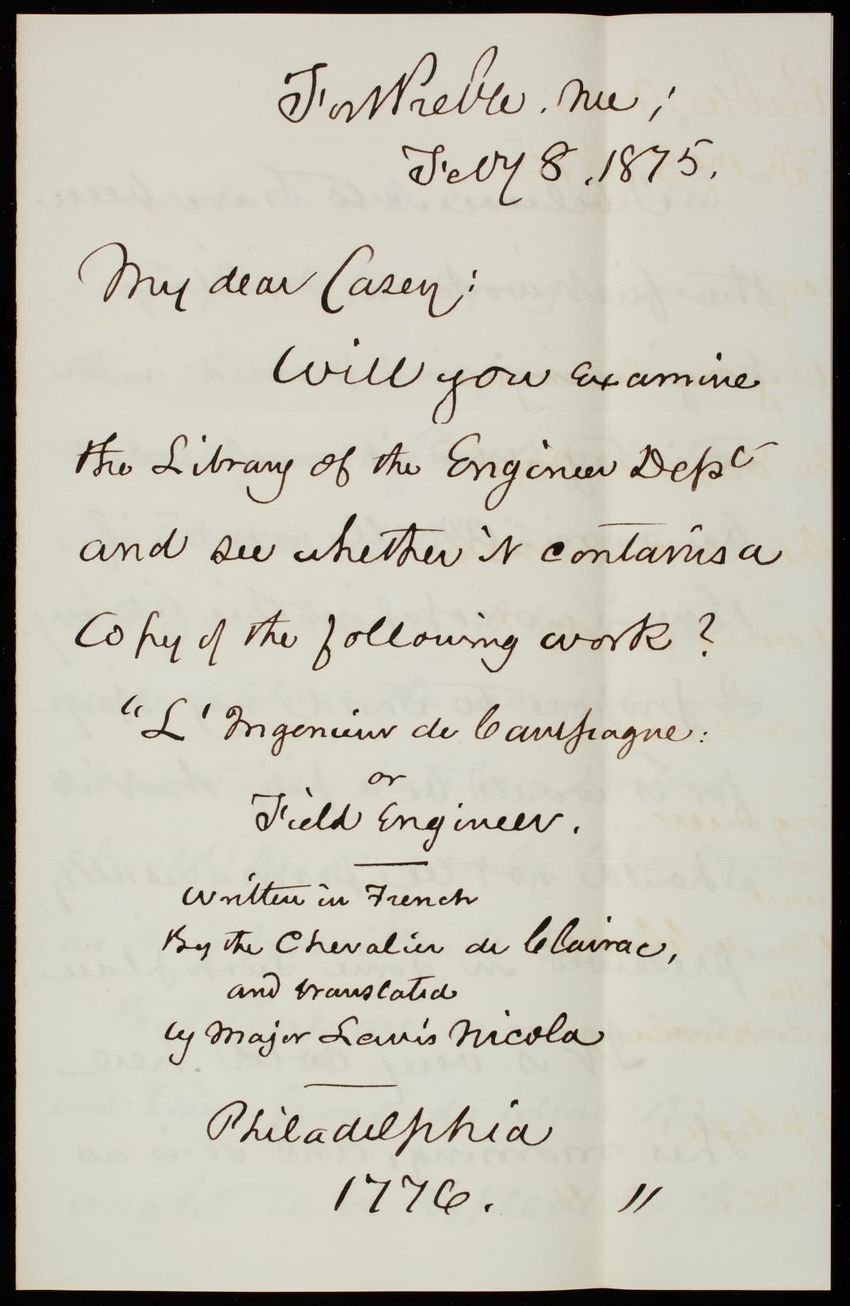 Fort Preble. Me;
Feby 8, 1875.
My dear Casey:
Will you examine
the Library of the Engineer Dept
and see whether it contains a
Copy of the following work?
"L'Ingenieur de Campagne:
or
Field Engineer.
written in French
By the Chevalier de Clairac,
and translated
by Major Lewis Nicola
Philadelphia
1776. "